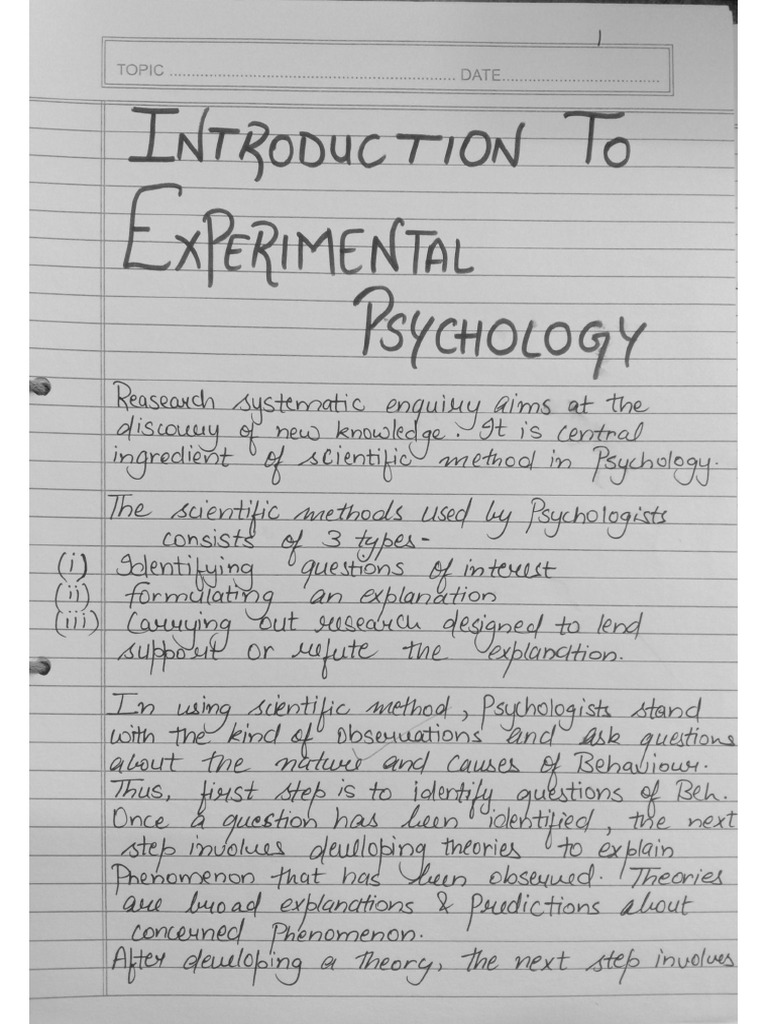 1
TOPIC ........................................................ DATE................................
INTRODUCTION TO
EXPERIMENTAL
PSYCHOLOGY
Reasearch systematic enquiry aims at the
discovery of new knowledge. It is central
ingredient of scientific method in Psychology.
The scientific methods used by Psychologists
consists of 3 types-
(i) Identifying questions of interest
(ii) formulating an explanation
(iii) Carrying out research designed to lend
support or refute the explanation.
In using scientific method, Psychologists stand
with the kind of observations and ask questions
about the nature and causes of Behaviour.
Thus, first step is to identify questions of Beh.
Once a question has been identified, the next
step involves developing theories to explain
Phenomenon that has been observed. Theories
are broad explanations & Predictions about
concerned Phenomenon.
After developing a Theory, the next step involves